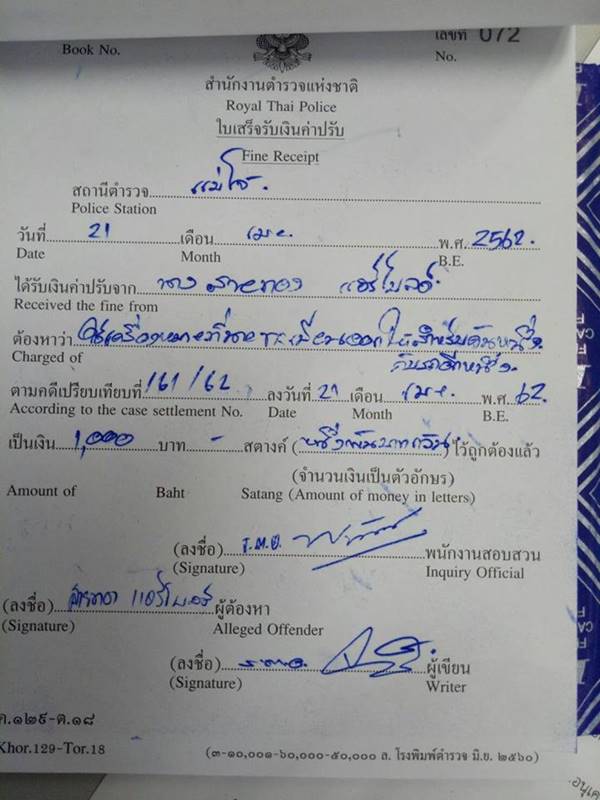 เลขที่ 072
Book No. No.
สำนักงานตำรวจแห่งชาติ
Royal Thai Police
ใบเสร็จรับเงินค่าปรับ
Fine Receipt
สถานีตำรวจ แม่โจ้
Police Station
วันที่ 21 เดือน เม.ย. พ.ศ. 2562
Date Month B.E.
ได้รับเงินค่าปรับจาก นาง สายทอง
Received the fine from
ต้องหาว่า ใช้เครื่องหมายที่นายทะเบียนออกให้สำหรับคันหนึ่ง
กับรถอีกหนึ่ง
Charged of
ตามคดีเปรียบเทียบที่ 161/62 ลงวันที่ 21 เดือน เม.ย. พ.ศ. 62
According to the case settlement No. Date Month B.E.
เป็นเงิน 1,000 บาท - สตางค์ (หนึ่งพันบาทถ้วน) ไว้ถูกต้องแล้ว
(จำนวนเงินเป็นตัวอักษร)
Amount of Baht Satang (Amount of money in letters)
(ลงชื่อ) พนักงานสอบสวน
(Signature) Inquiry Official
(ลงชื่อ) ผู้ต้องหา
(Signature) Alleged Offender
(ลงชื่อ) ผู้เขียน
(Signature) Writer
ค.๑๒๙-ต.๑๘
Khor.129-Tor.18
(๓-๑๐,๐๐๑-๖๐,๐๐๐-๕๐,๐๐๐ ล. โรงพิมพ์ตำรวจ มิ.ย. ๒๕๖๐)